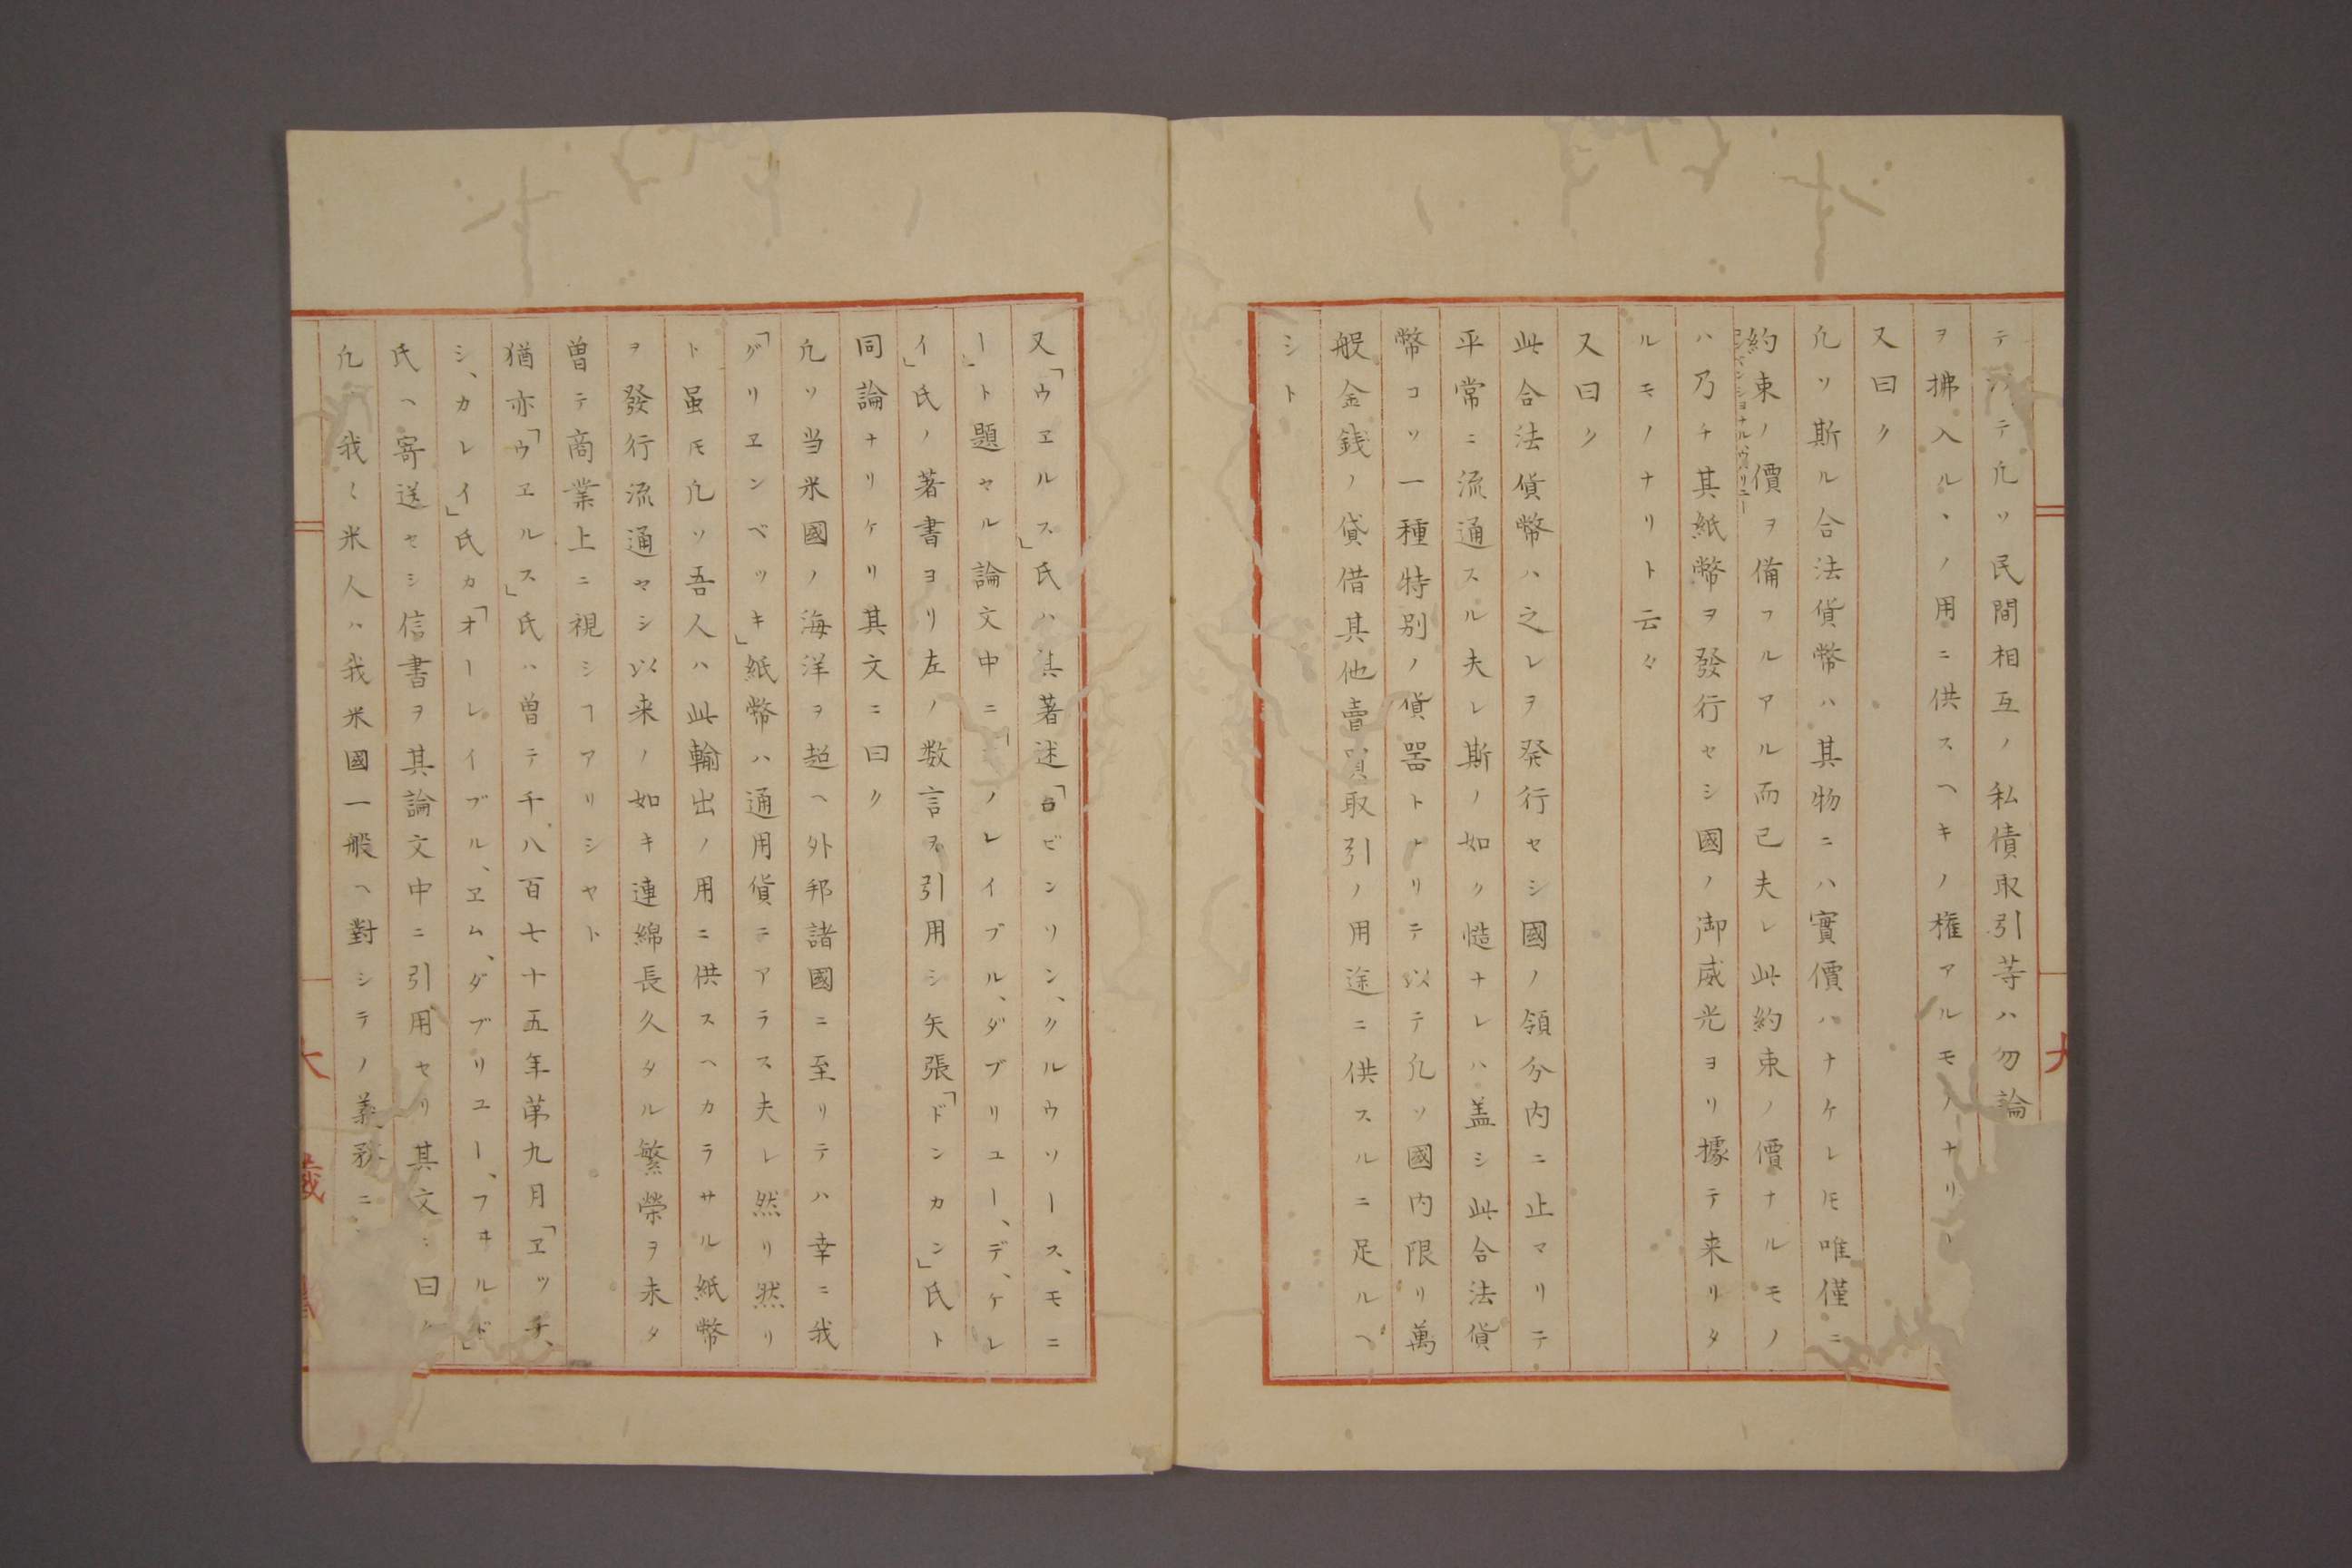 テハテ凢ソ民間相互ノ私債取引等ハ勿論
ヲ拂入ルヽノ用ニ供スヘキノ権アルモノナリ
又曰ク
凢ソ斯ル合法貨幣ハ其物ニハ實價ハナケレ𪜈唯僅ニ
約束ノ價ヲ備フルアル而已夫レ此約束ノ價ナルモノ
コンベンショナルヴァリユー
ハ乃チ其紙幣ヲ發行セシ國ノ御威光ヨリ據テ来リタ
ルモノナリト云々
又曰ク
此合法貨幣ハ之レヲ発行セシ國ノ領分内ニ止マリテ
平常ニ流通スル夫レ斯ノ如ク慥ナレハ盖シ此合法貨
幣コソ一種特別ノ貨噐トナリテ以テ凢ソ國内限リ萬
般金銭ノ貸借其他賣買取引ノ用途ニ供スルニ足ルヘ
シト
又「ウヱルス」氏ハ其著述「ロビンソン、クルウソース、モニ
ー」ト題セル論文中ニ「ノレイブル、ダブリユー、デ、ケレ
イ」氏ノ著書ヨリ左ノ数言ヲ引用シ矢張「ドンカン」氏ト
同論ナリケリ其文ニ曰ク
凢ソ当米國ノ海洋ヲ超ヘ外邦諸國ニ至リテハ幸ニ我
「グリヱンベツキ」紙幣ハ通用貨ニアラス夫レ然リ然リ
ト虽𪜈凢ソ吾人ハ此輸出ノ用ニ供スヘカラサル紙幣
ヲ發行流通セシ以来ノ如キ連綿長久タル繁榮ヲ未タ
曽テ商業上ニ視シヿアリシヤト
猶亦「ウヱルス」氏ハ曽テ千八百七十五年第九月「ヱッチ、
シ、カレイ」氏カ「オーレイブル、ヱム、ダブリユー、フヰルド」
氏ヘ寄送セシ信書ヲ其論文中ニ引用セリ其文ニ曰ク
凢ソ我々米人ハ我米國一般ヘ對シテノ義務ニ